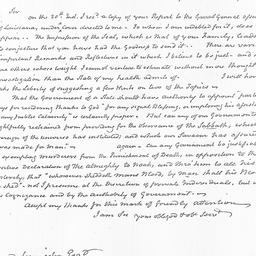 Sir
on the 20th ult. I rec'd a Copy of your Report to the General Assembly of
Louisiana, under Cover directed to me. To whom I am indebted for it, does
appear. The impression of the Seal, which is that of your Family, leads
to conjecture that you have had the Goodness to send it. There are many
important Remarks and Reflections in it which I believe to be just - and
some others whose tought I cannot venture to estimate without more thought
investigation than the State of my health admits of. I will however
take the liberty of suggesting a few Hints on two of the Topics in
That the Government of a State should have authority to appoint public
Days for rendering Thanks to God "for any signal Blessing, or imploring his assistance
any public Calamity" is certainly proper. But can any of our Governments
rightfully restrained from providing for the observance of the Sabbath, which
Sovereign of the universe has instituted, and which our Saviour has assured
was made for man".
again - can any Government be justified
exempting murderers from the Punishment of Death, in opposition to the
Declaration of the Almighty to Noah, and thro' him to all his
viz, that "whosoever sheddeth Man's blood, by Man shall his blood
shed". not I presume at the Discretion of private Individuals, but
cognizance and by the authority of Government.
accept my Thanks for this mark of friendly attention
I am Sir your obliged & obt. Servt.
Livingston Esqr.